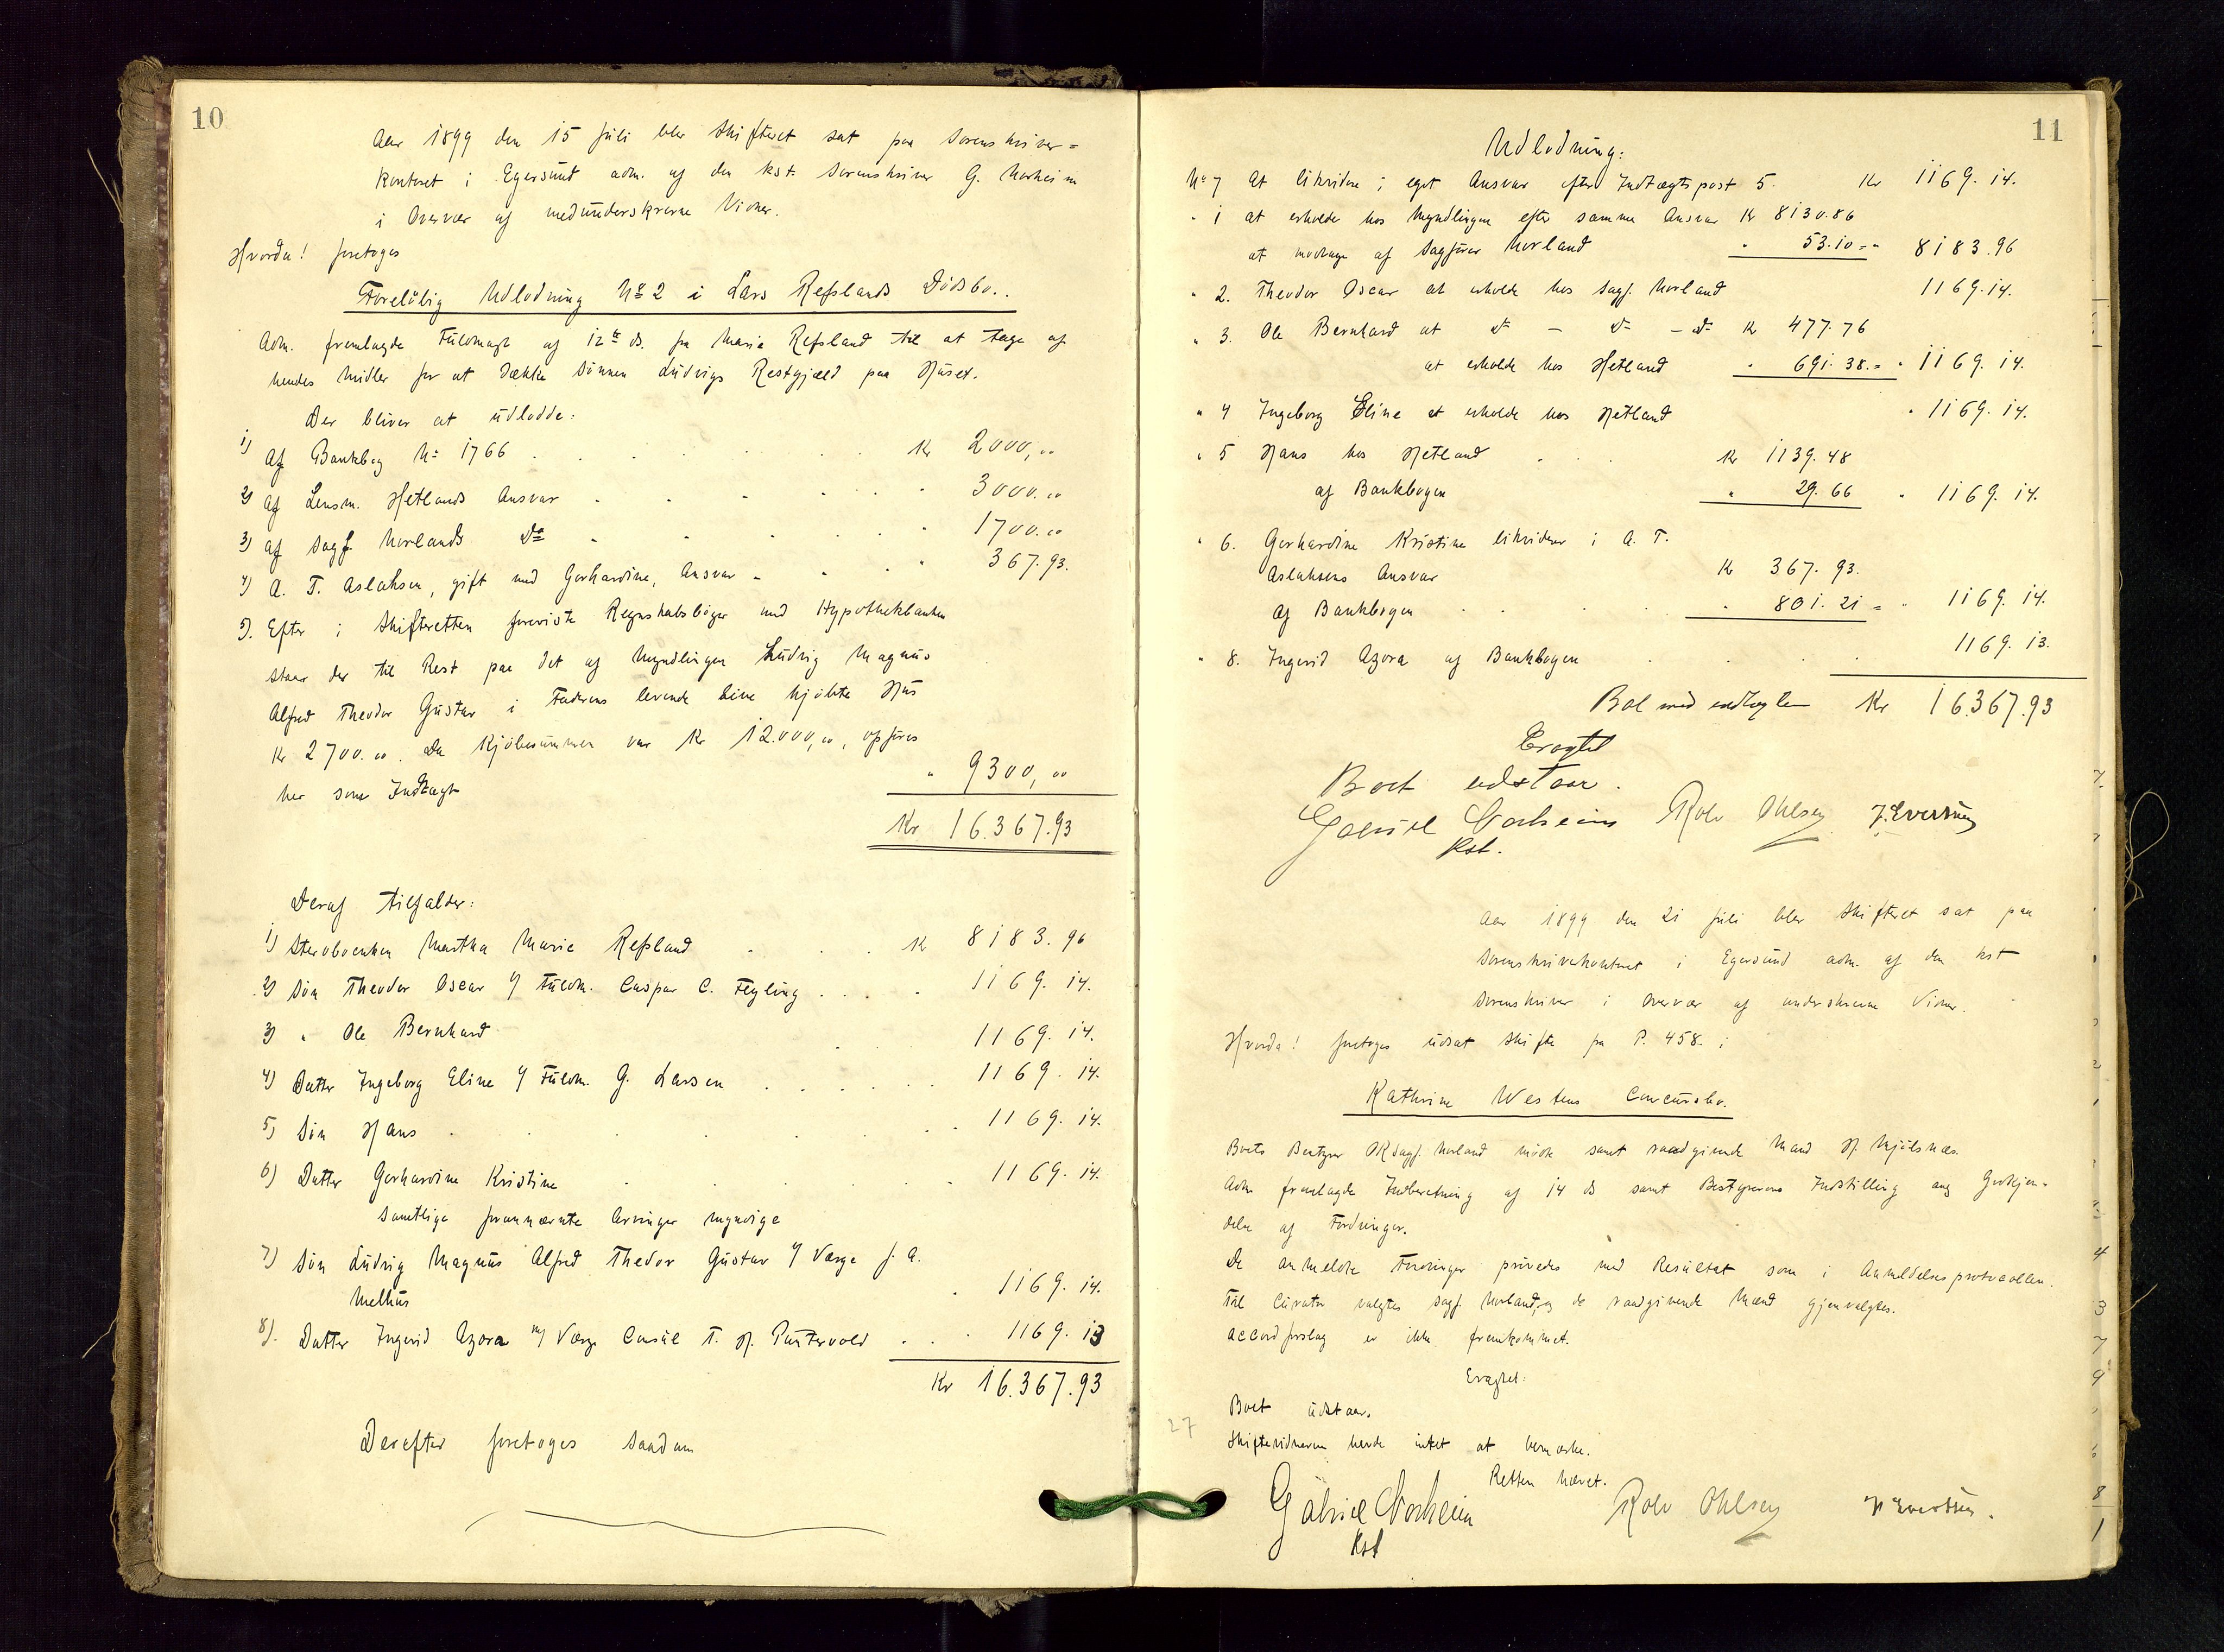 10
Aar 1899 den 15 Juli blev Skifteret sat paa Sorenskriver=
kontoret i Egersund adm. af den kst. Sorenskriver G. Norheim
i Overvær af medunderskrevne Vidner.
Hvorda! foretoges
Foreløbig Udlodning No 2 i Lars Refslands Dødsbo.
Adm. fremlagde Fuldmagt af 12te ds. fra Marie Refsland til at tage af
hendes Midler for at dække Sønnen Ludvigs Restgjæld paa Huset.
Der bliver at udlodde:
1) Af Bankbog No 1766 . . . Kr 2000,00
2) Af Lensm. Hetlands Ansvar . . . 3000.00
3) Af Sagf. Norlands Do . . . 1700.00
4) A. T. Aslaksen, gift med Gerhardine, Ansvar . . 367.93.
5). Efter i Skifteretten foreviste Regnskabsbøger med Hypothekbanken
staar der til Rest paa det af Myndlingen Ludvig Magnus
Alfred Theodor Gustav i Faderens levende Live kjøbte Hus
Kr 2700.00. Da Kjøbesummen var Kr 12.000,00, opføres
her som Indtægt " 9300,00
Kr 16.367.93
Deraf tilfalder:
1) Sterbboenken Martha Marie Refsland . . . Kr 8183.96
2) Søn Theodor Oscar v/ Fuldm. Caspar C. Feyling . . . 1169.14.
3) " Ole Bernhard 1169.14.
4) Datter Ingeborg Eline v/ Fuldm. G. Larsen . . . 1169.14.
5) Søn Hans . . . 1169.14.
6) Datter Gerhardine Kristine . . . 1169.14.
Samtlige forannævnte Arvinger myndige
7) Søn Ludvig Magnus Alfred Thedor Gustav v/ Værge J. A.
Melhus . 1169.14.
8). Datter Ingerid Azora m/ Værge Consul T. H. Puntervold . . . 1169.13
Kr 16.367.93
Derefter foretoges saadan
11
Udlodning:
No 7 At likvidere i eget Ansvar efter Indtægtspost 5. Kr 1169.14.
" 1 at erholde hos Myndlingen efter samme Ansvar Kr 8130.86
at modtage af Sagfører Norland " 53.10 = " 8183.96
" 2. Theodor Oscar at erholde hos Sagf. Norland 1169.14.
" 3. Ole Bernhard at do - do - do Kr 477.76
at erholde hos Hetland " 691.38. = " 1169.14.
" 4 Ingeborg Eline at erholde hos Hetland " 1169.14.
" 5 Hans hos Hetland . . . Kr 1139.48
af Bankbogen " 29.66 " 1169.14.
" 6. Gerhardine Kristine likviderer i A. T.
Aslaksens Ansvar Kr 367.93.
af Bankbogen . . . " 801.21 = " 1169.14.
" 8. Ingerid Azora af Bankbogen . . . 1169.13.
Bal med indtægten Kr 16.367.93
Eragtet
Boet udstaar.
Gabriel Norheim Rolv Ohlsen J. Evertsen
kst.
Aar 1899 den 21 Juli blev Skifteret sat paa
Sorenskriverkontoret i Egersund adm. af den kst
Sorenskriver i Overvær af underskrevne Vidner.
Hvorda! foretoges udsat Skifte fra P. 458. i
Kathrine Westens Concursbo.
Boets Bestyrer ORSagf. Norland mødte samt raadgivende Mand H. Mjølsnæs.
Adm. fremlagde Indberetning af 14 ds samt Bestyrerens Indstilling ang Godkjen-
delse af Fordringer.
De anmeldte Fordringer prøvedes med Resultat som i Anmeldelsesprotocollen.
Til Curator valgtes Sagf. Norland, og de raadgivende Mænd gjenvalgtes.
Accordforslag er ikke fremkommet.
Eragtet:
Boet udstaar.
27
Skiftevidnerne havde intet at bemærke.
Retten hævet.
Gabriel Norheim Rolv Ohlsen J. Evertsen.
kst